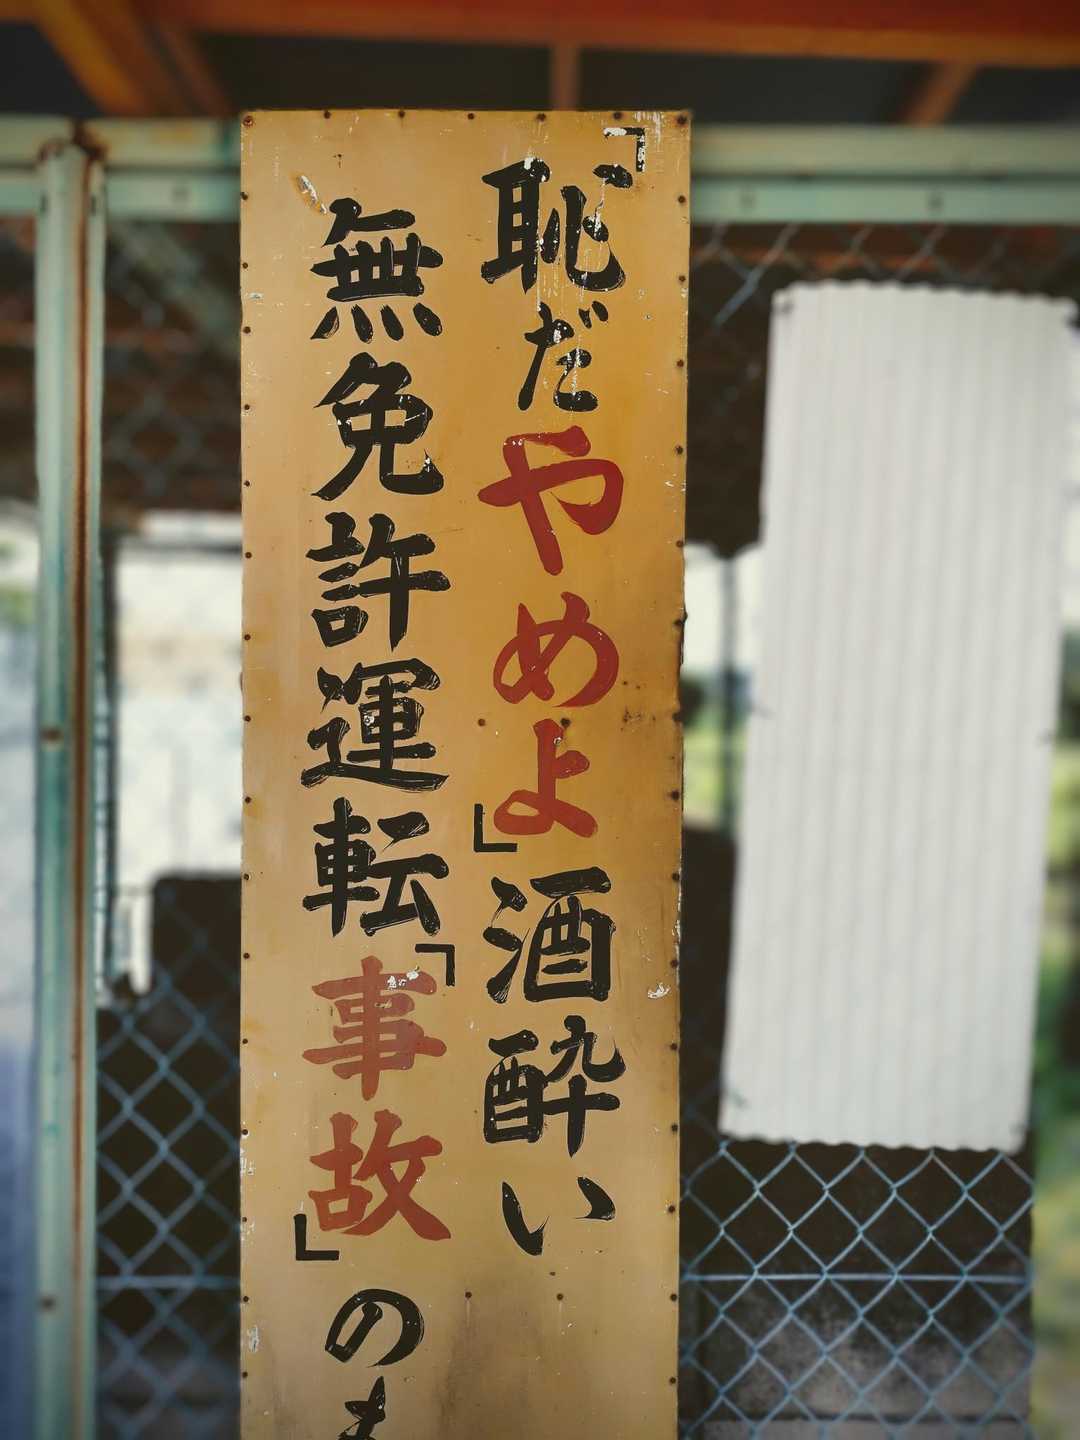 「恥だやめよ」酒酔い
無免許運転「事故」の